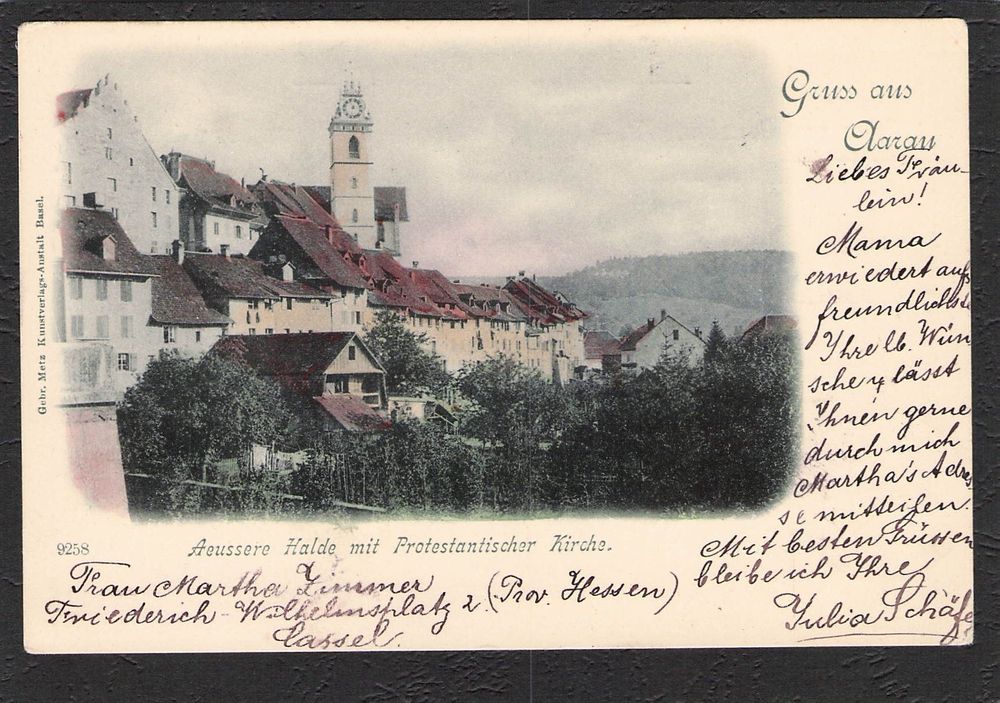 Gruss aus
Aarau
Liebes Fräu-
lein!
Mama
erwiedert aufs
freundlichste
Ihre lb. Wün
sche u lässt
Ihnen gerne
durch mich
Martha's Adres
se mitteilen.
Mit besten Grüssen
bleibe ich Ihre
Julia Schäfe
Gebr. Metz Kunstverlags-Anstalt Basel.
9258
Aeussere Halde mit Protestantischer Kirche.
Frau Martha Zimmer
Friederich-Wilhelmsplatz 2. (Prov. Hessen)
Cassel.